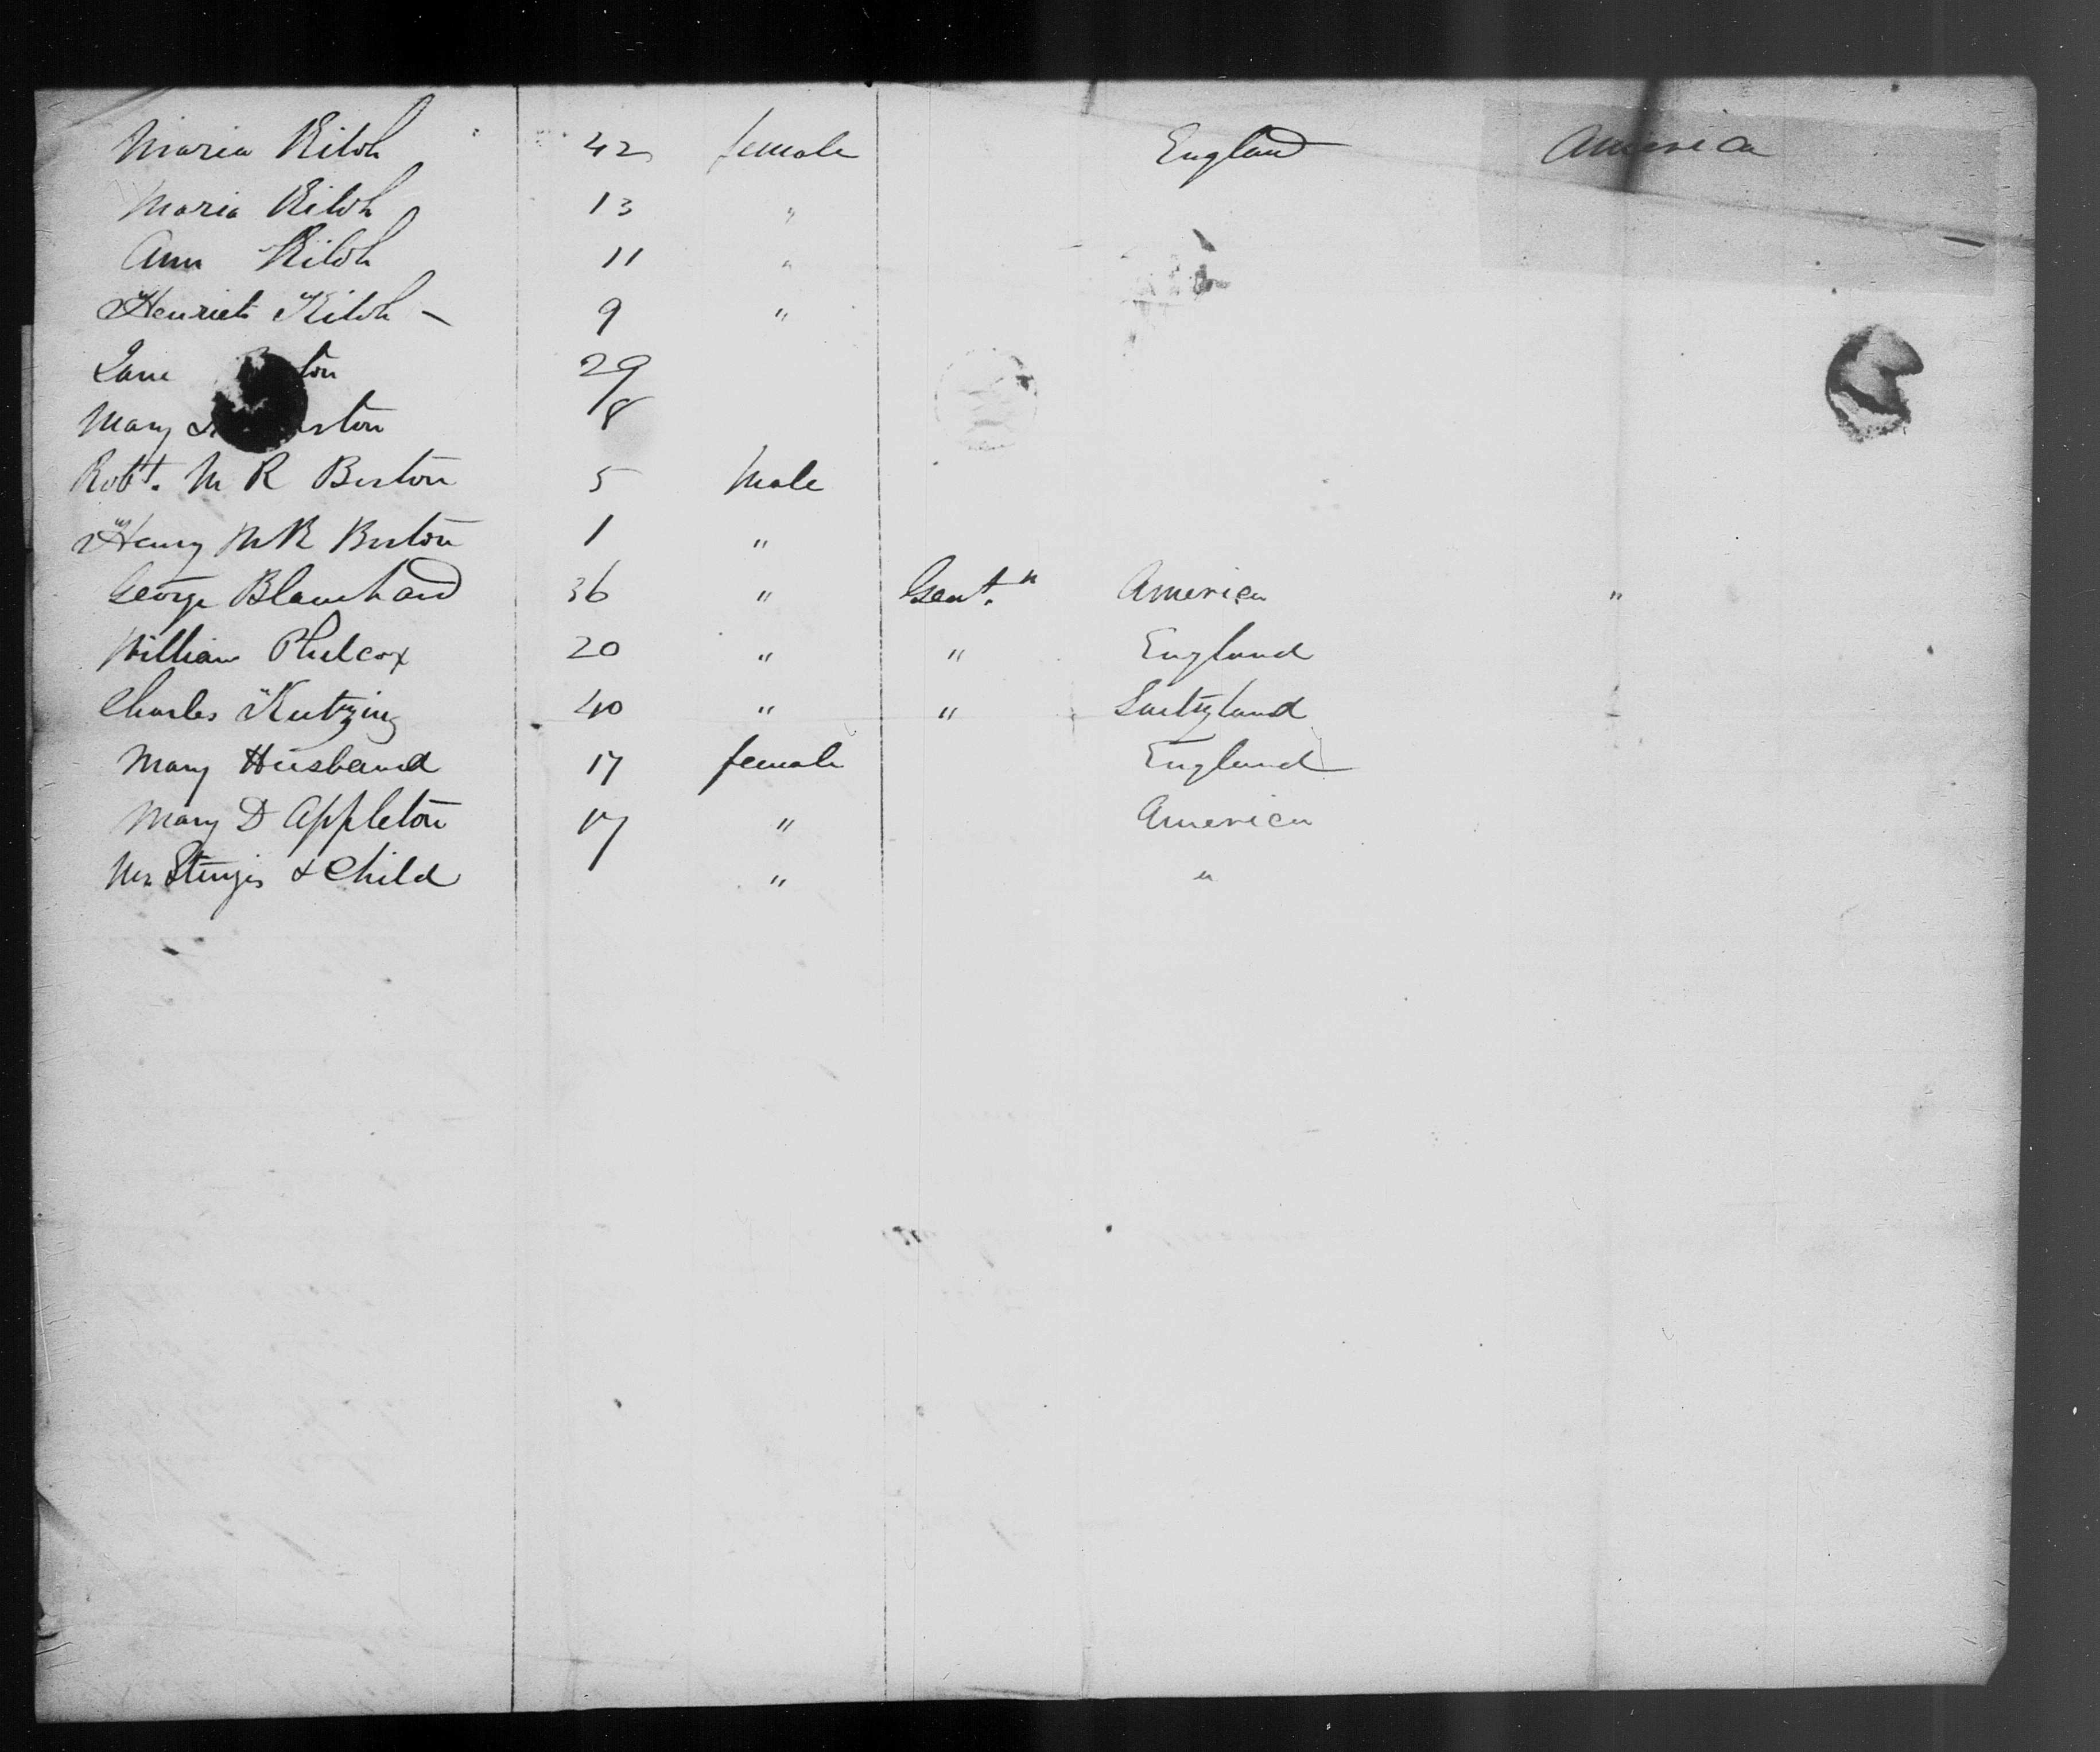 Maria Kitch 42 female England America
Maria Kitch 13 "
Ann Kitch 11 "
Henriet Kitch 9 "
Jane 29
Mary 8
Robt. M R Burton 5 Male
Henry M R Burton 1 "
George Blanchard 36 " Gent.n America "
William Philcox 20 " " England
Charles Kutzing 40 " " Switzland
Mary Husband 17 female England
Mary D Appleton 17 " America
Mrs Sturgis & Child " "